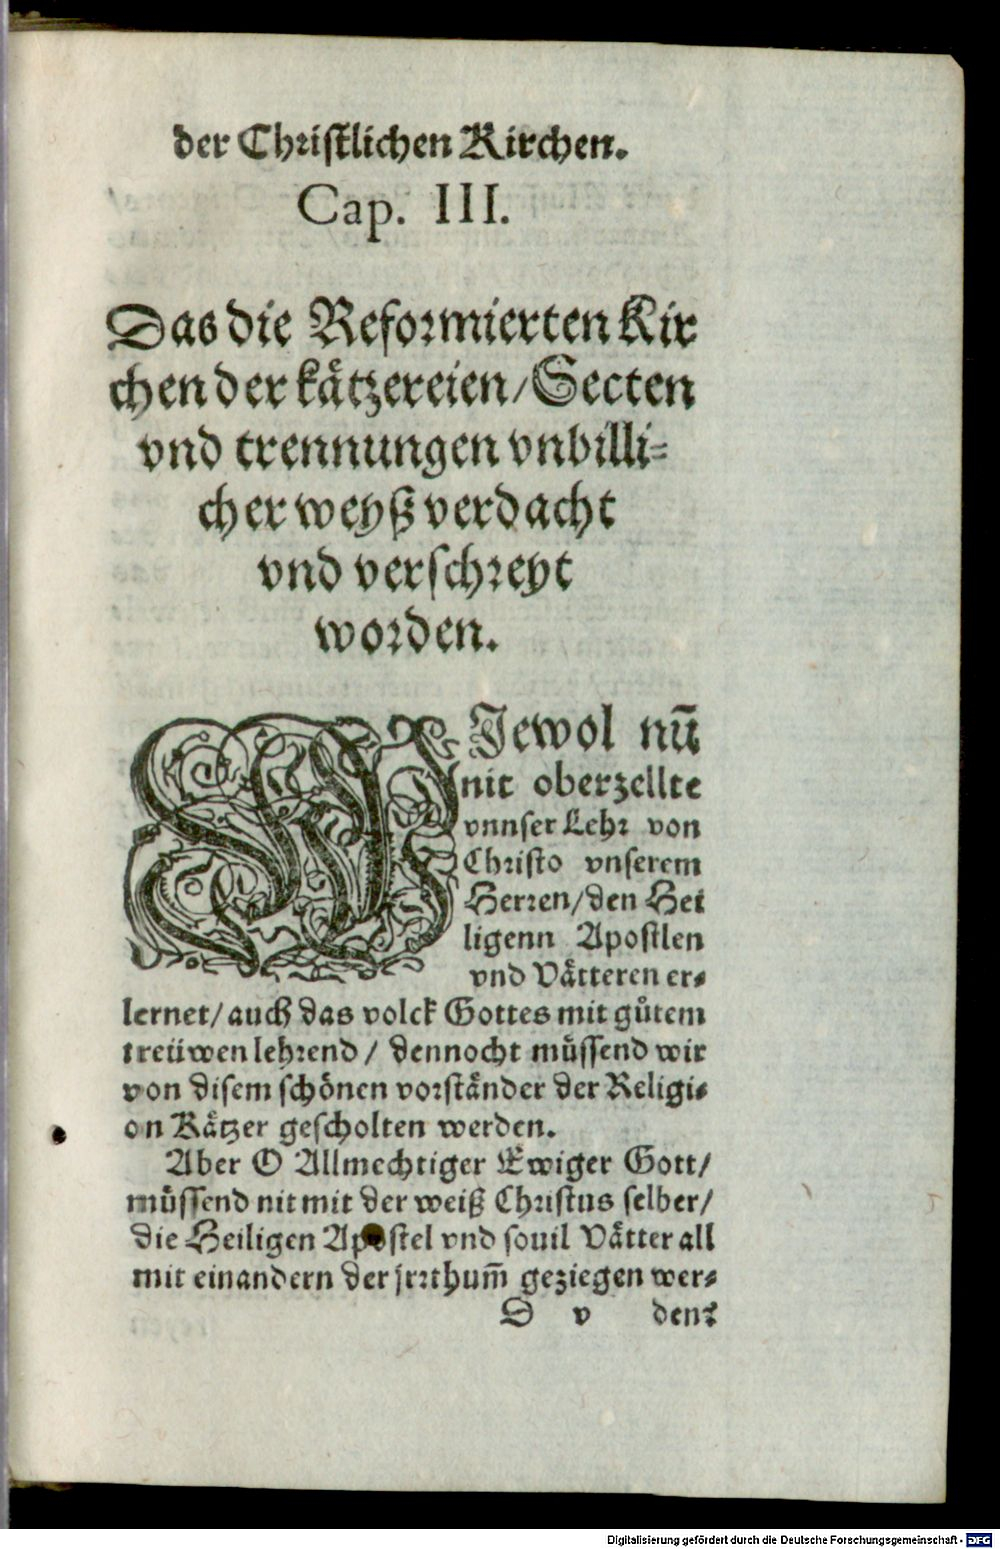 der Christlichen Kirchen.
Cap. III.
Das die Reformierten Kir
chen der kätzereien/Secten
vnd trennungen vnbilli-
cher weyß verdacht
vnd verschreyt
worden.
WIewol nū
nit oberzellte
vnnser Lehr von
Christo vnserem
Herren/den Hei
ligenn Apostlen
vnd Vätteren er-
lernet/auch das volck Gottes mit gůtem
treüwen lehrend / dennocht müssend wir
von disem schönen vorständer der Religi-
on Kätzer gescholten werden.
Aber O Allmechtiger Ewiger Gott/
müssend nit mit der weiß Christus selber/
die Heiligen Apostel vnd souil Vätter all
mit einandern der jrrthum̄ geziegen wer-
D v den?
Digitalisierung gefördert durch die Deutsche Forschungsgemeinschaft - DFG